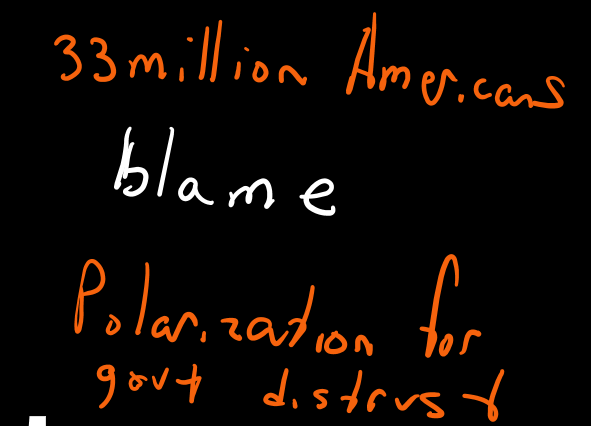 33 million Americans
blame
Polarization for
govt distrust